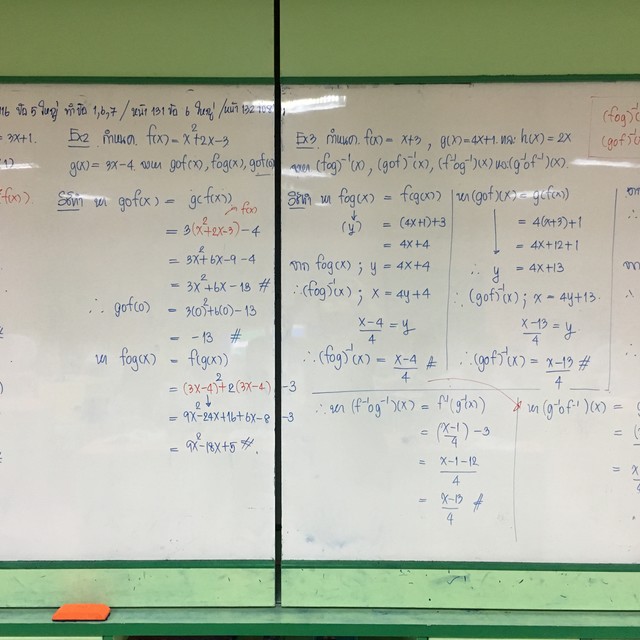 16 ข้อ 5 ใหญ่ ทำข้อ 1,6,7 / หน้า 131 ข้อ 6 ใหญ่ / หน้า 132
= 3x+1.
f(x).
Ex2 กำหนด f(x) = x²+2x-3
g(x) = 3x-4 จงหา gof(x), fog(x), gof(0)
วิธีทำ หา gof(x) = g(f(x))
f(x)
= 3(x²+2x-3)-4
= 3x²+6x-9-4
= 3x²+6x-13 #
∴ gof(0) = 3(0)²+6(0)-13
= -13 #
หา fog(x) = f(g(x))
= (3x-4)²+2(3x-4)-3
= 9x²-24x+16+6x-8-3
= 9x²-18x+5 #.
Ex3 กำหนด f(x) = x+3, g(x) = 4x+1 และ h(x) = 2x
จงหา (fog)⁻¹(x), (gof)⁻¹(x), (f⁻¹og⁻¹)(x) และ (g⁻¹of⁻¹)(x).
วิธีทำ หา fog(x) = f(g(x))
(y) = (4x+1)+3
= 4x+4
จาก fog(x) ; y = 4x+4
∴ (fog)⁻¹(x) ; x = 4y+4
x-4/4 = y
∴ (fog)⁻¹(x) = x-4/4 #
หา (gof)(x) = g(f(x))
= 4(x+3)+1
= 4x+12+1
∴ y = 4x+13
∴ (gof)⁻¹(x) ; x = 4y+13.
x-13/4 = y
∴ (gof)⁻¹(x) = x-13/4 #
∴ หา (f⁻¹og⁻¹)(x) = f⁻¹(g⁻¹(x))
= (x-1/4) - 3
= x-1-12/4
= x-13/4 #
หา (g⁻¹of⁻¹)(x) =
(fog)⁻¹
(gof)⁻¹